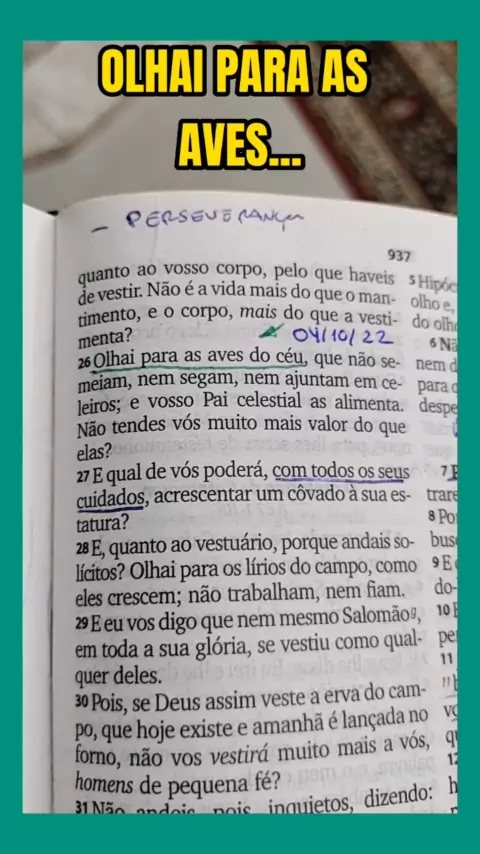 OLHAI PARA AS
AVES...
- PERSEVERANÇA
937
quanto ao vosso corpo, pelo que haveis
de vestir. Não é a vida mais do que o man-
timento, e o corpo, mais do que a vesti-
menta?
04/10/22
26 Olhai para as aves do céu, que não se-
meiam, nem segam, nem ajuntam em ce-
leiros; e vosso Pai celestial as alimenta.
Não tendes vós muito mais valor do que
elas?
27 E qual de vós poderá, com todos os seus
cuidados, acrescentar um côvado à sua es-
tatura?
28 E, quanto ao vestuário, porque andais so-
lícitos? Olhai para os lírios do campo, como
eles crescem; não trabalham, nem fiam.
29 E eu vos digo que nem mesmo Salomão g,
em toda a sua glória, se vestiu como qual-
quer deles.
30 Pois, se Deus assim veste a erva do cam-
po, que hoje existe e amanhã é lançada no
forno, não vos vestirá muito mais a vós,
homens de pequena fé?
31 Não andeis, pois, inquietos, dizendo:
5 Hipóc
olho e,
do olh
6 Nã
nem d
para
despe
7
trare
8 Po
bus
9 E
do-
10
per
11
12